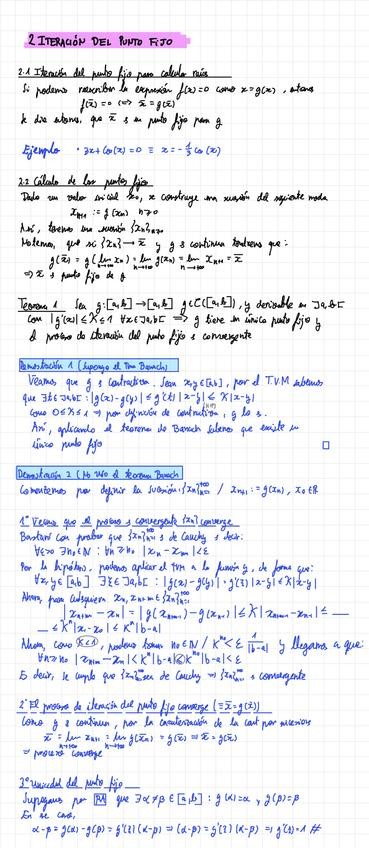 2 ITERACIÓN DEL PUNTO FIJO
2.1 Iteración del punto fijo para calcular raíces
Si podemos reescribir la expresión f(x)=0 como x=g(x), entonces
f(x̄)=0 ⟺ x̄=g(x̄)
se dice entonces, que x̄ es un punto fijo para g
Ejemplo · 3x+cos(x)=0 ≡ x=-1/3 cos(x)
2.2 Cálculo de los puntos fijos
Dado un valor inicial x₀, se construye una sucesión del siguiente modo
xₙ₊₁ := g(xₙ) n≥0
Así, tenemos una sucesión {xₙ}
Notemos, que si {xₙ} → x̄ y g es continua tendremos que:
g(x̄) = g(lim xₙ) = lim g(xₙ) = lim xₙ₊₁ = x̄
⇒ x̄ es punto fijo de g
Teorema 1 Sea g:[a,b]→[a,b] g∈C([a,b]), y derivable en ]a,b[
con |g'(x)| ≤ K ≤ 1 ∀x∈]a,b[ ⇒ g tiene un único punto fijo y
el proceso de iteración del punto fijo es convergente
Demostración 1 (Supongo el Tma Banach)
Veamos que g es contractiva. Sean x,y∈[a,b], por el T.V.M sabemos
que ∃ξ∈]a,b[ : |g(x)-g(y)| ≤ g'(ξ)|x-y| ≤ K|x-y|
como 0≤K≤1 ⇒ por definición de contractiva, g lo es.
Así, aplicando el teorema de Banach sabemos que existe un
único punto fijo
Demostración 2 (No uso el teorema Banach
Comencemos por definir la sucesión: {xₙ} / xₙ₊₁ := g(xₙ), x₀∈ℝ
1º Veamos que el proceso es convergente {xₙ} converge
Bastará con probar que {xₙ} es de Cauchy es decir:
∀ε>0 ∃n₀∈ℕ : ∀n≥n₀ |xₙ-xₘ|<ε
Por la hipótesis, podemos aplicar el TVM a la función g, de forma que:
∀x,y∈[a,b] ∃ξ∈]a,b[ : |g(x)-g(y)| = g'(ξ)|x-y| ≤ K|x-y|
Ahora, para cualesquiera xₙ, xₘ∈{xₙ}
|xₙ₊ₘ - xₙ| = |g(xₙ₊ₘ₋₁) - g(xₙ₋₁)| ≤ K|xₙ₊ₘ₋₁ - xₙ₋₁| ≤
≤ Kⁿ|x - x₀| ≤ Kⁿ|b-a|
Ahora, como K<1, podemos tomar n₀∈ℕ / Kⁿ⁰ < ε 1/|b-a| y llegamos a que:
∀n≥n₀ |xₙ₊ₘ - xₙ| < Kⁿ|b-a| ≤ Kⁿ⁰|b-a| < ε
Es decir, se cumple que {xₙ} es de Cauchy ⇒ {xₙ} es convergente
2º El proceso de iteración del punto fijo converge (≡ x̄=g(x̄))
Como g es continua, por la caracterización de la cont por sucesiones
x̄ = lim xₙ₊₁ = lim g(xₙ) = g(x̄) ⇒ x̄=g(x̄)
⇒ proceso converge
3º Unicidad del punto fijo
Supongamos por RA que ∃α≠β∈[a,b] : g(α)=α y g(β)=β
En ese caso,
α-β = g(α)-g(β) = g'(ξ)(α-β) ⇒ (α-β) = g'(ξ)(α-β) ⇒ g'(ξ)=1 #